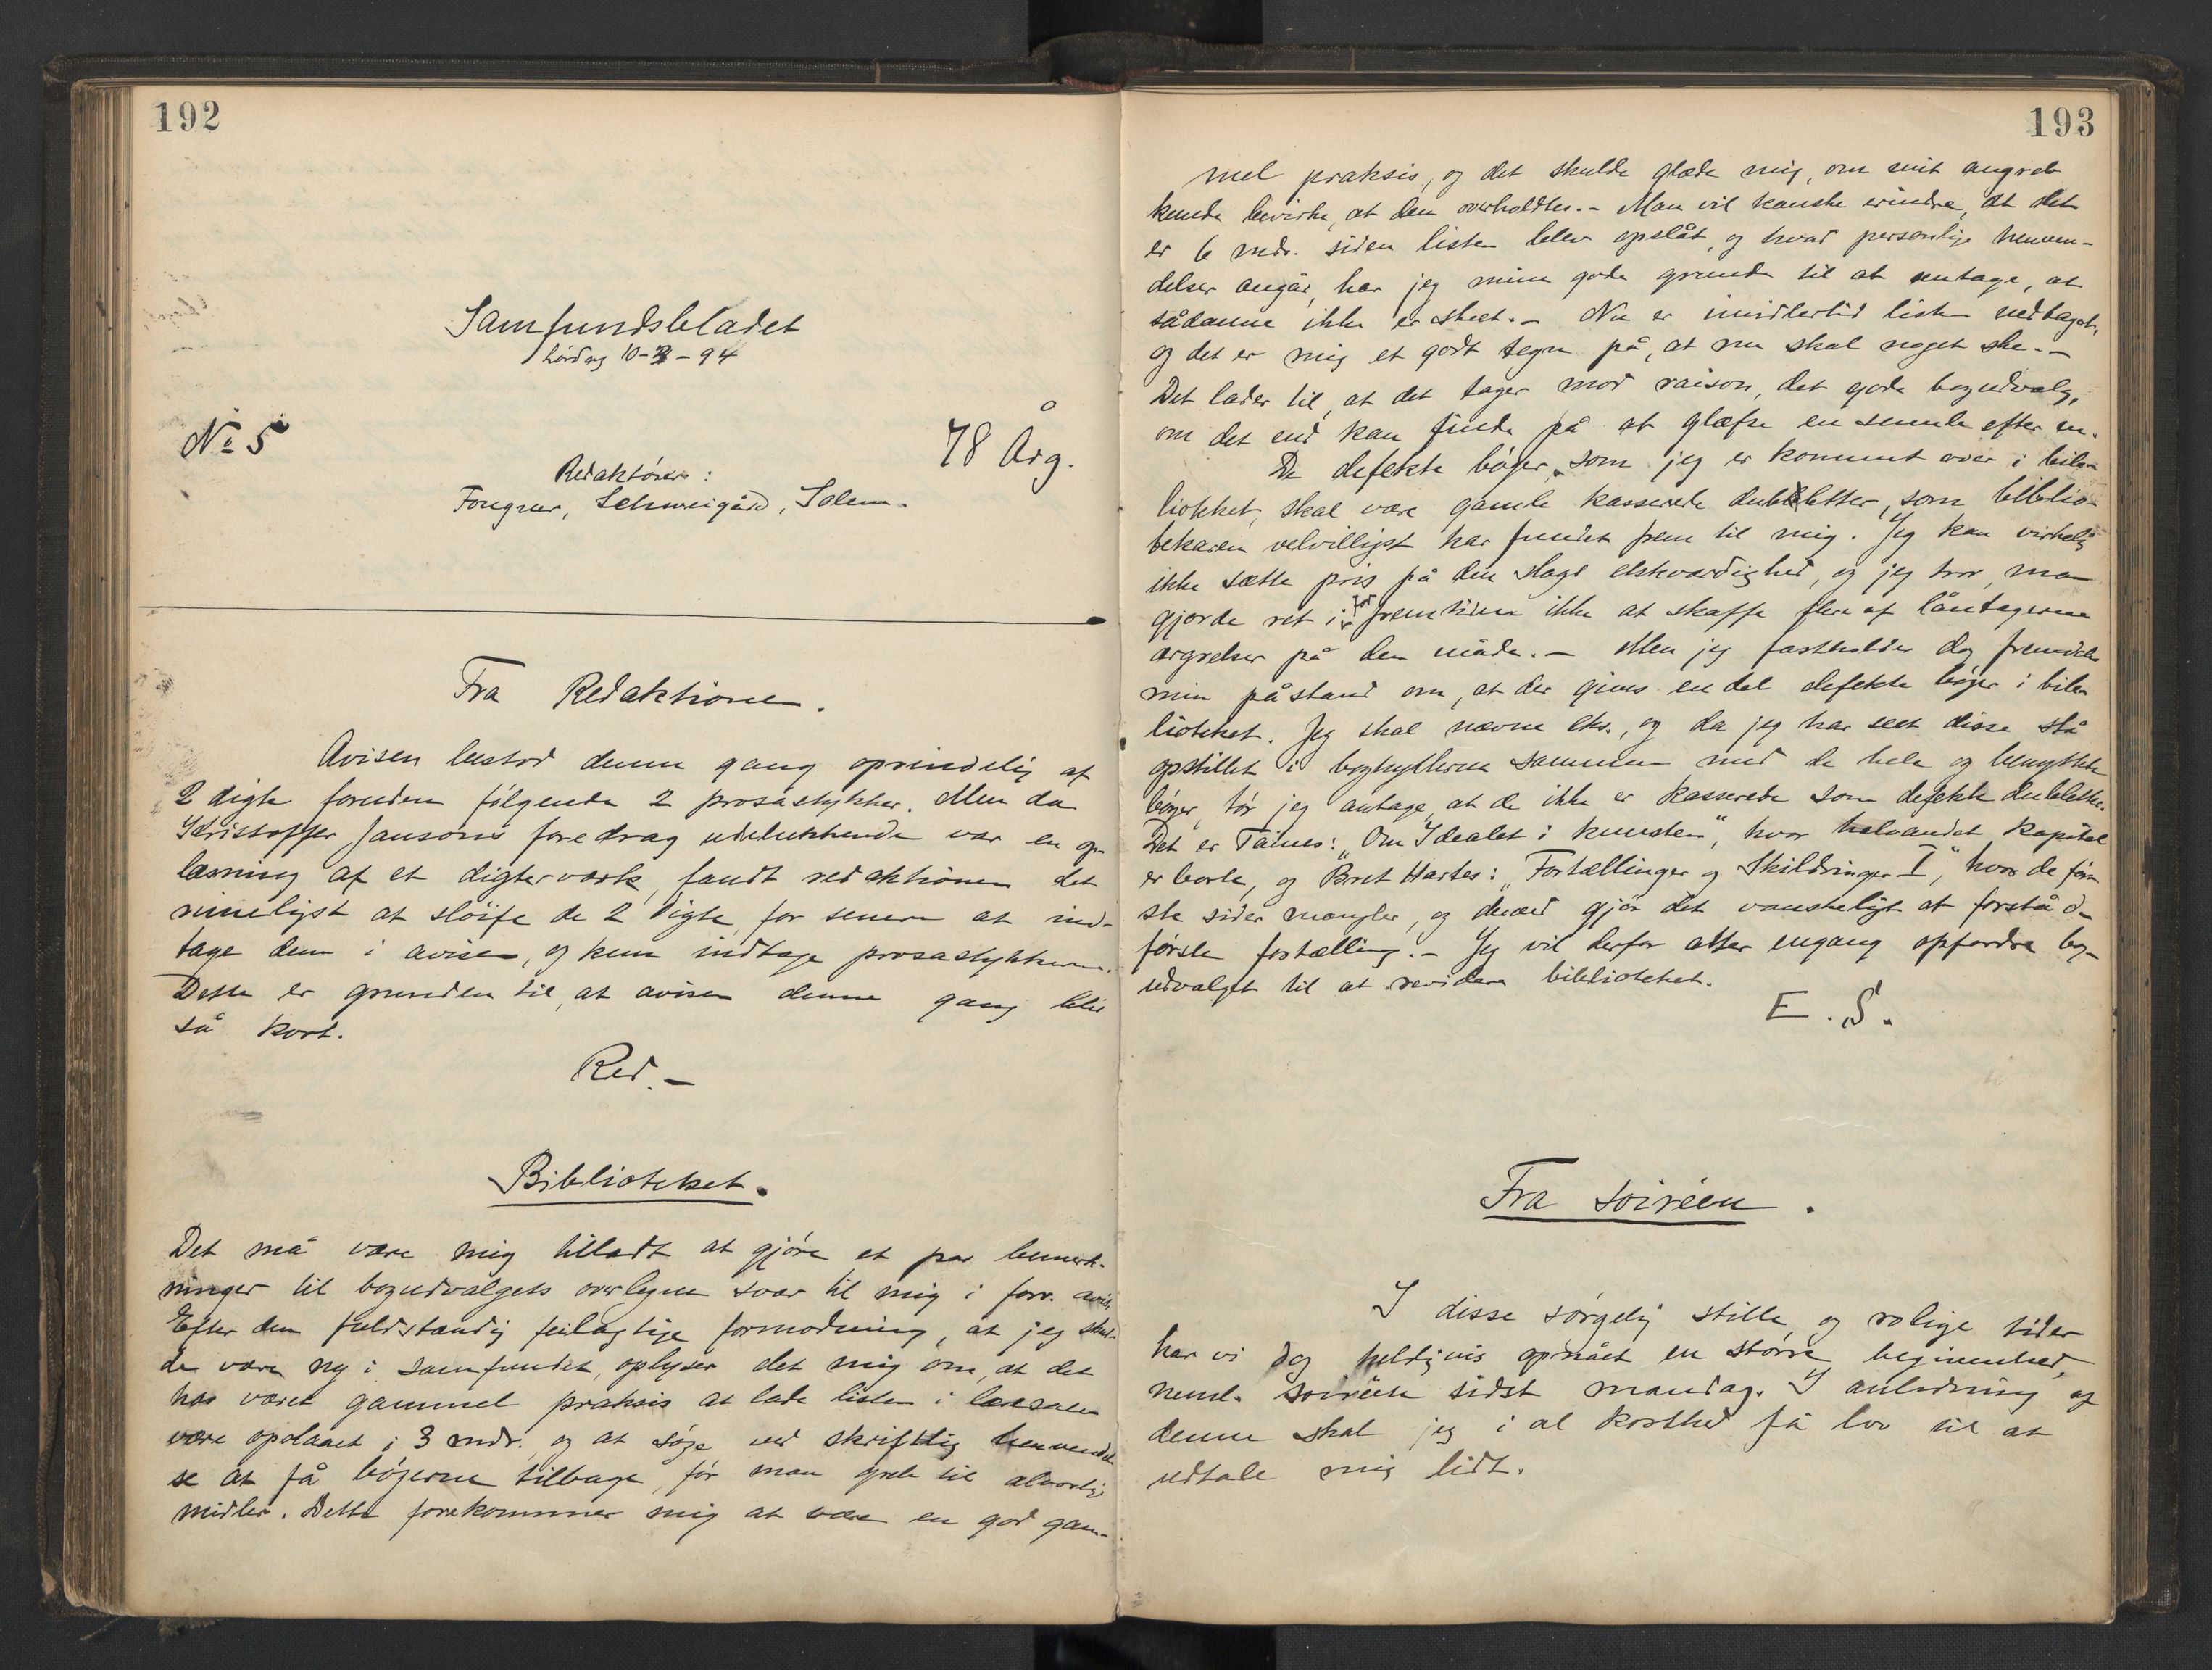 192
Samfundsbladet
Lördag 10-3-94
No 5
78 Årg.
Redaktörer:
Fougner, Schweigård, Solem.
Fra Redaktionen.
Avisen bestod denne gang oprindelig af
2 digte foruden følgende 2 prosastykker. Men da
Kristoffer Jansons foredrag udelukkende var en op-
læsning af et digterværk, fandt redaktionen det
rimeligst at sløife de 2 digte, for senere at ind-
tage dem i avisen, og kun indtage prosastykkerne.
Dette er grunden til, at avisen denne gang blir
så kort.
Red. –
Biblioteket.
Det må være mig tilladt at gjøre et par bemerk-
ninger til bogudvalgets overlegne svar til mig i forr. avis.
Efter den fuldstændig feilagtige formodning, at jeg skul-
de være ny i samfundet, oplyser det mig om, at det
har været gammel praksis at lade listen i læsesalen
være opslaaet i 3 mdr. og at søge ved skriftlig henvendel-
se at få bøgerne tilbage, før man greb til alvorlige
midler. Dette forekommer mig at være en god gam-
193
mel praksis, og det skulde glæde mig, om mit angreb
kunde bevirke, at den overholdtes. – Man vil kanske erindre, at det
er 6 mdr. siden listen blev opslåt, og hvad personlige henven-
delser angår, har jeg mine gode grunde til at antage, at
sådanne ikke er skeet. – Nu er imidlertid listen nedtaget,
og det er mig et godt tegn på, at nu skal noget ske. –
Det lader til, at det tager mod raison, det gode bogudvalg,
om det end kan finde på at glæfse en smule efter en.
De defekte bøger, som jeg er kommet over i bib-
lioteket, skal være gamle kasserede dubletter, som biblio-
tekaren velvilligst har fundet frem til mig. Jeg kan virkelig
ikke sætte pris på den slags elskværdighed, og jeg tror, man
gjorde ret i for fremtiden ikke at skaffe flere af låntagerne
ærgrelser på den måde. – Men jeg fastholder dog fremdeles
min påstand om, at der gives en del defekte bøger i bib-
lioteket. Jeg skal nævne eks., og da jeg har seet disse stå
opstillet i boghyllerne sammen med de hele og benyttede
bøger, tør jeg antage, at de ikke er kasserede som defekte dubletter.
Det er Taines: „Om Idealet i kunsten", hvor halvandet kapitel
er borte, og Bret Hartes: „Fortællinger og Skildringer I", hvor de før-
ste sider mangler, og derved gjør det vanskeligt at forstå den
første fortælling. – Jeg vil derfor atter engang opfordre bog-
udvalget til at revidere biblioteket.
E. S.
Fra soiréen.
I disse sørgelig stille og rolige tider
har vi dog heldigvis opnået en større begivenhed,
neml. soiréen sidst mandag. I anledning af
denne skal jeg i al korthed få lov til at
udtale mig lidt.